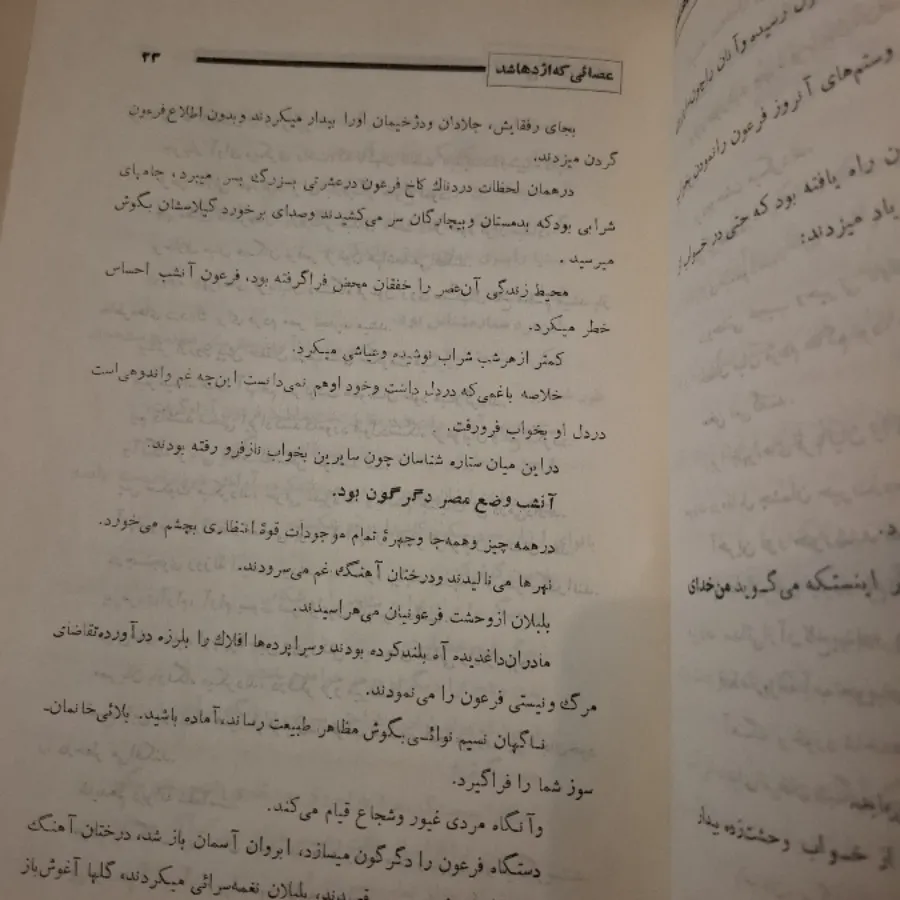 عصائی که اژدها شد
۲۳
بجای رفقایش، جلادان ودژخیمان اورا بیدار میکردند وبدون اطلاع فرعون
گردن میزدند.
درهمان لحظات دردناك کاخ فرعون درعشرتی بزرگ بسر میبرد، جامهای
شرابی بودکه بدمستان وبیچارگان سر می‌کشیدند وصدای برخورد گیلاسشان بگوش
میرسید .
محیط زندگی آن‌عصر را خفقان محض فراگرفته بود، فرعون آنشب احساس
خطر میکرد.
کمتر ازهرشب شراب نوشیده وعیاشی میکرد.
خلاصه باغمی‌که دردل داشت وخود اوهم نمی‌دانست این‌چه غم واندوهی‌است
دردل او بخواب فرورفت.
دراین میان ستاره شناسان چون سایرین بخواب نازفرو رفته بودند.
آنشب وضع مصر دگرگون بود.
درهمه چیز وهمه‌جا وچهرهٔ تمام موجودات قوهٔ انتظاری بچشم می‌خورد.
نهرها می‌نالیدند ودرختان آهنگ غم می‌سرودند.
بلبلان ازوحشت فرعونیان می‌هراسیدند.
مادران‌داغدیده آه بلندکرده بودند وسراپرده‌ها افلاك را بلرزه درآورده‌تقاضای
مرگ ونیستی فرعون را می‌نمودند.
ناگهان نسیم نوائی‌بگوش مظاهر طبیعت رساند،آماده باشید. بلائی‌خانمان‌ـ
سوز شما را فراگیرد.
وآنگاه مردی غیور وشجاع قیام می‌کند.
دستگاه فرعون را دگرگون میسازد، ابروان آسمان باز شد، درختان آهنگ
بلبلان نغمه‌سرائی میکردند، گلها آغوش‌باز
رسیده وآنان را
وستم‌های آنروز فرعون را
راه یافته بود که حتی در خواب
یاد میزدند:
اینستکه می‌گوید من‌خدای
از خواب وحشت‌زده بیدار